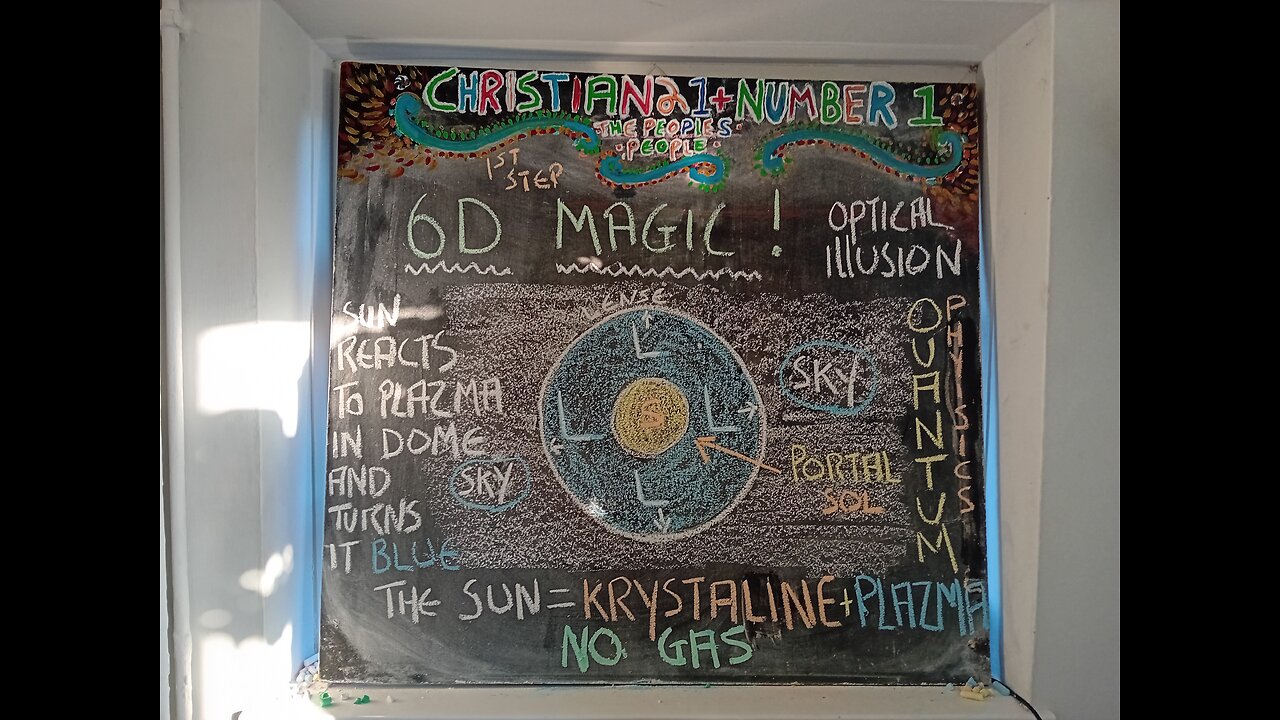 CHRISTIAN21+NUMBER 1
·THE PEOPLES·
·PEOPLE·
1ST
STEP
6D MAGIC!
OPTICAL
ILLUSION
SUN
REACTS
TO PLAZMA
IN DOME
AND
TURNS
IT BLUE
LENSE
L
L
S
L
L
SKY
SKY
PORTAL
SOL
QUANTUM
PHYISICS
THE SUN=KRYSTALINE+PLAZMA
NO GAS